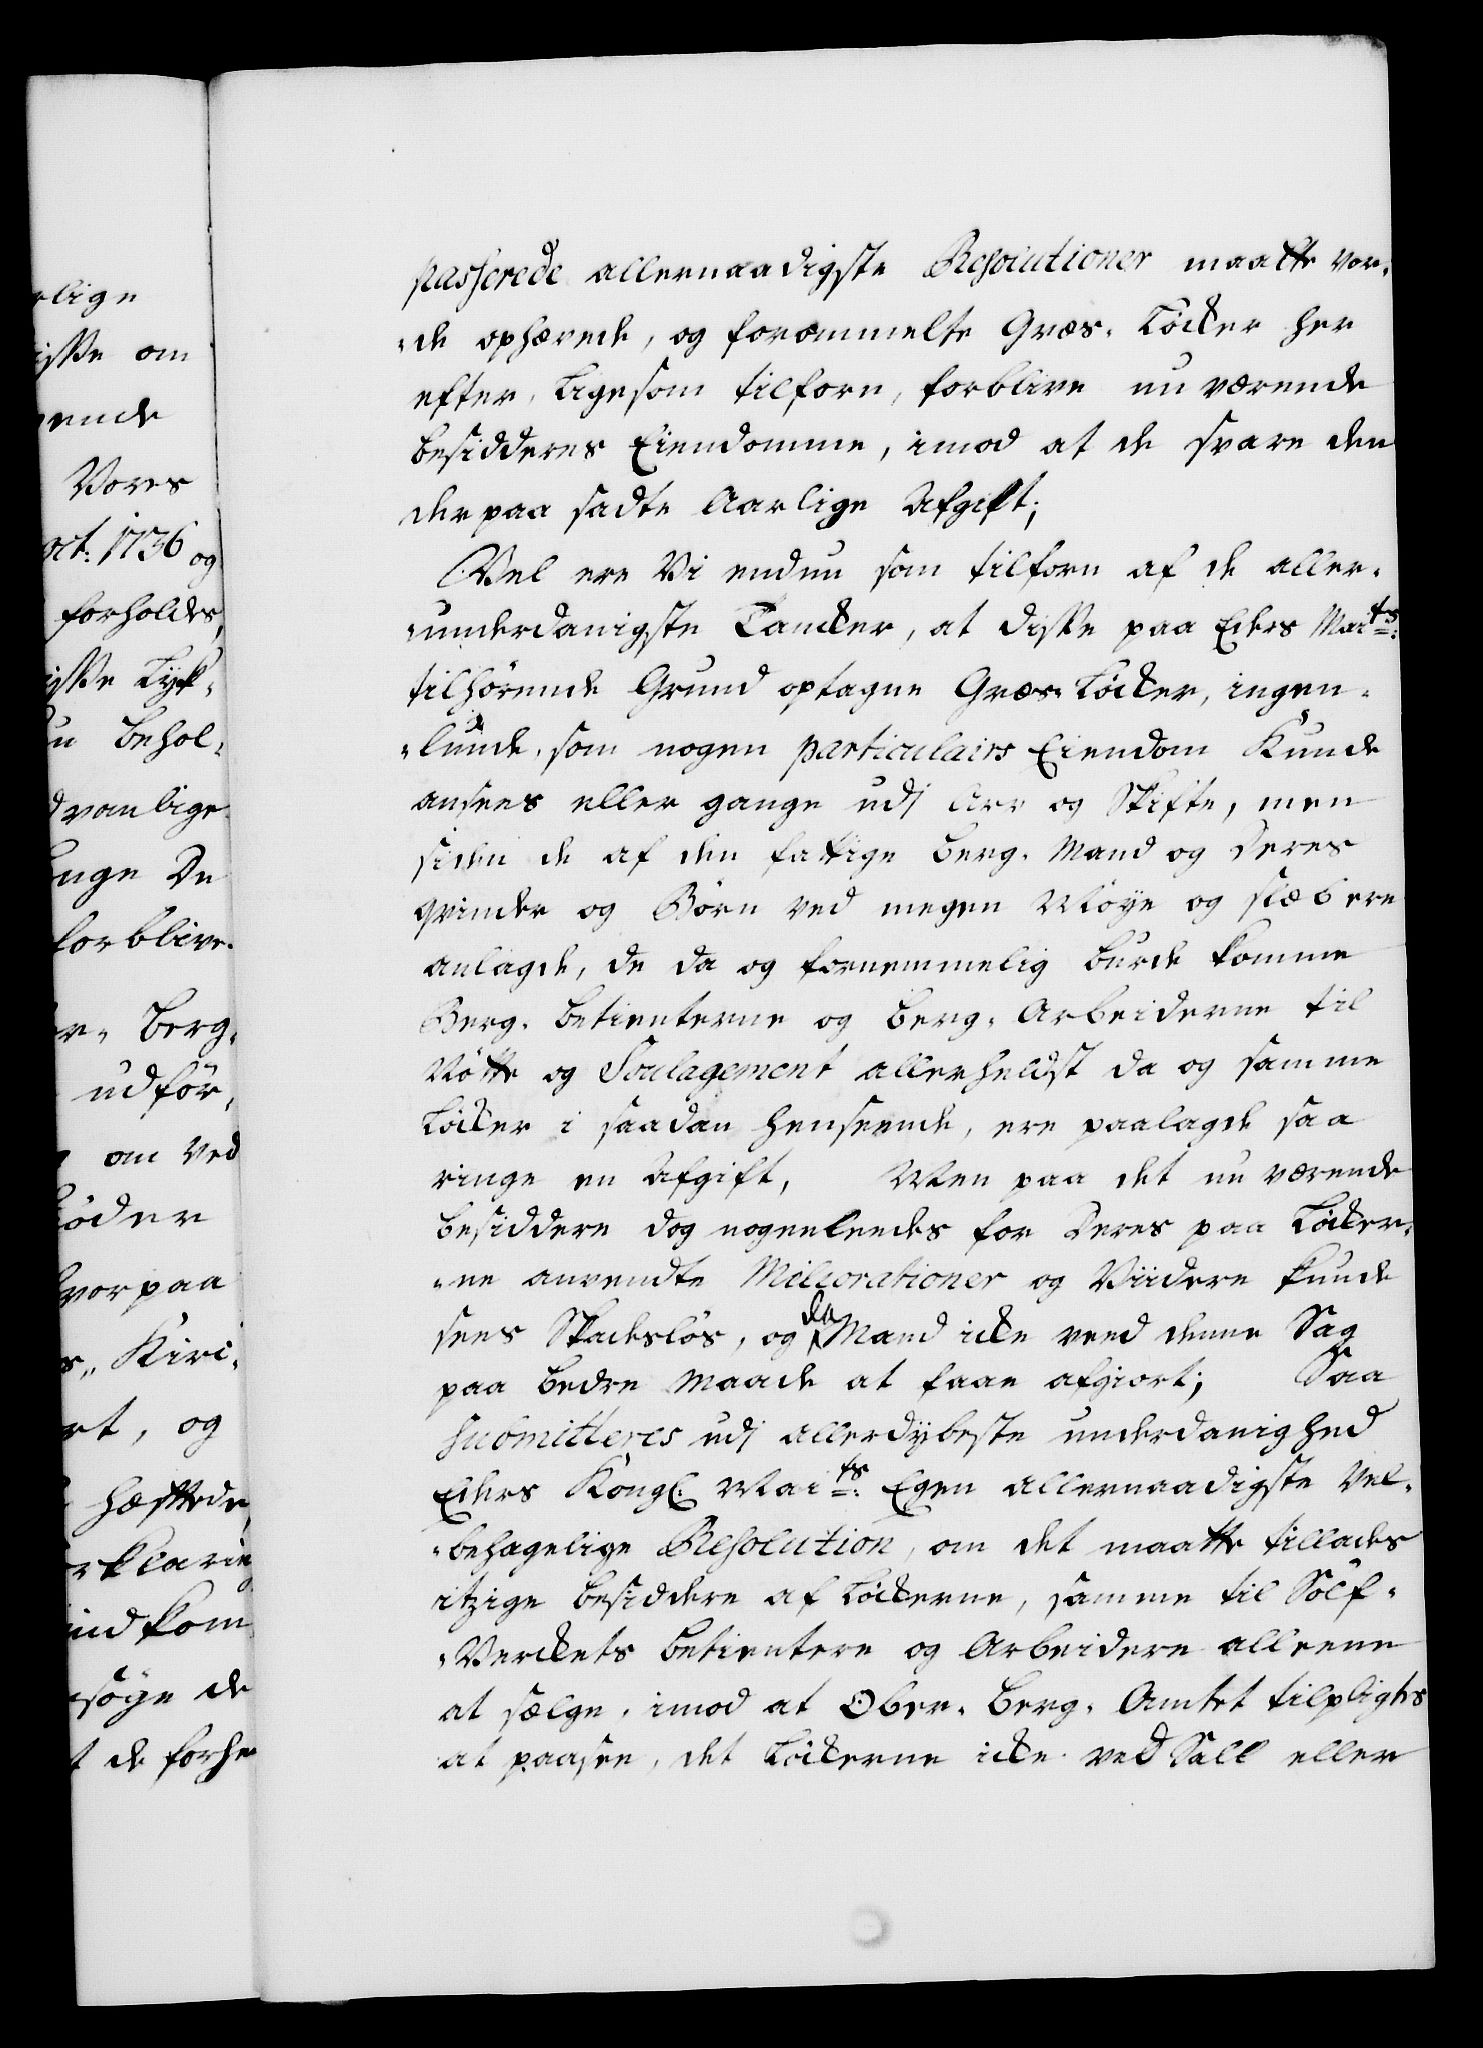 rlige
isse om
ende
Vores
oct: 1736 og
forholdes,
isse Lyk-
u behol-
dvanlige
uge De
forblive
r- Berg-
udför,
om ved
öder
vorpaa
s,, Kiri-
rt, og
hæftede
rklarin
ind kom
söge de
t de forhe
passerede allernaadigste Resolutioner maatte vor-
-de ophævede, og forommelte Græs- Löcker her
efter, ligesom tilforn, forblive nu værende
besidderes Eiendomme, imod at de svare den
derpaa sadte Aarlige Afgift;
Vel ere Vi endnu som tilforn af de aller-
-underdanigste Tancker, at disse paa Eders Maits:
tilhörende Grund optagne Græs- Löcker, ingen-
-lunde, som nogen particulairs Eiendom kunde
ansees eller gange udj Arv og Skifte, men
siden de af den fattige Berg- Mand og Deres
qvinder og Börn ved megen Möye og slæb ere
anlagde, de da og fornemmelig burde komme
Berg- betienterne og Berg- Arbeiderne til
Nötte og Soulagement allerheldst da og samme
Löcker i saadan henseende, ere paalagde saa
ringe en Afgift, Men paa det nu værende
besiddere dog nogenleedes for Deres paa Löcker-
-ne anvendte Meliorationer og Viidere kunde
sees Skadeslös, og da Mand icke veed denne Sag
paa bedre Maade at faae afgiort; Saa
submitteres udj allerdybeste underdanighed
Eders Kongl: Maits: Egen allernaadigste Vel-
-behagelige Resolution, om det maatte tillades
itzige besiddere af Löckerne, samme til Sölf-
-Verckets betientere og Arbeidere alleene
at sælge, imod at Ober- Berg- Amtet tilpligtes
at paasee, det Löckerne icke ved Sall eller